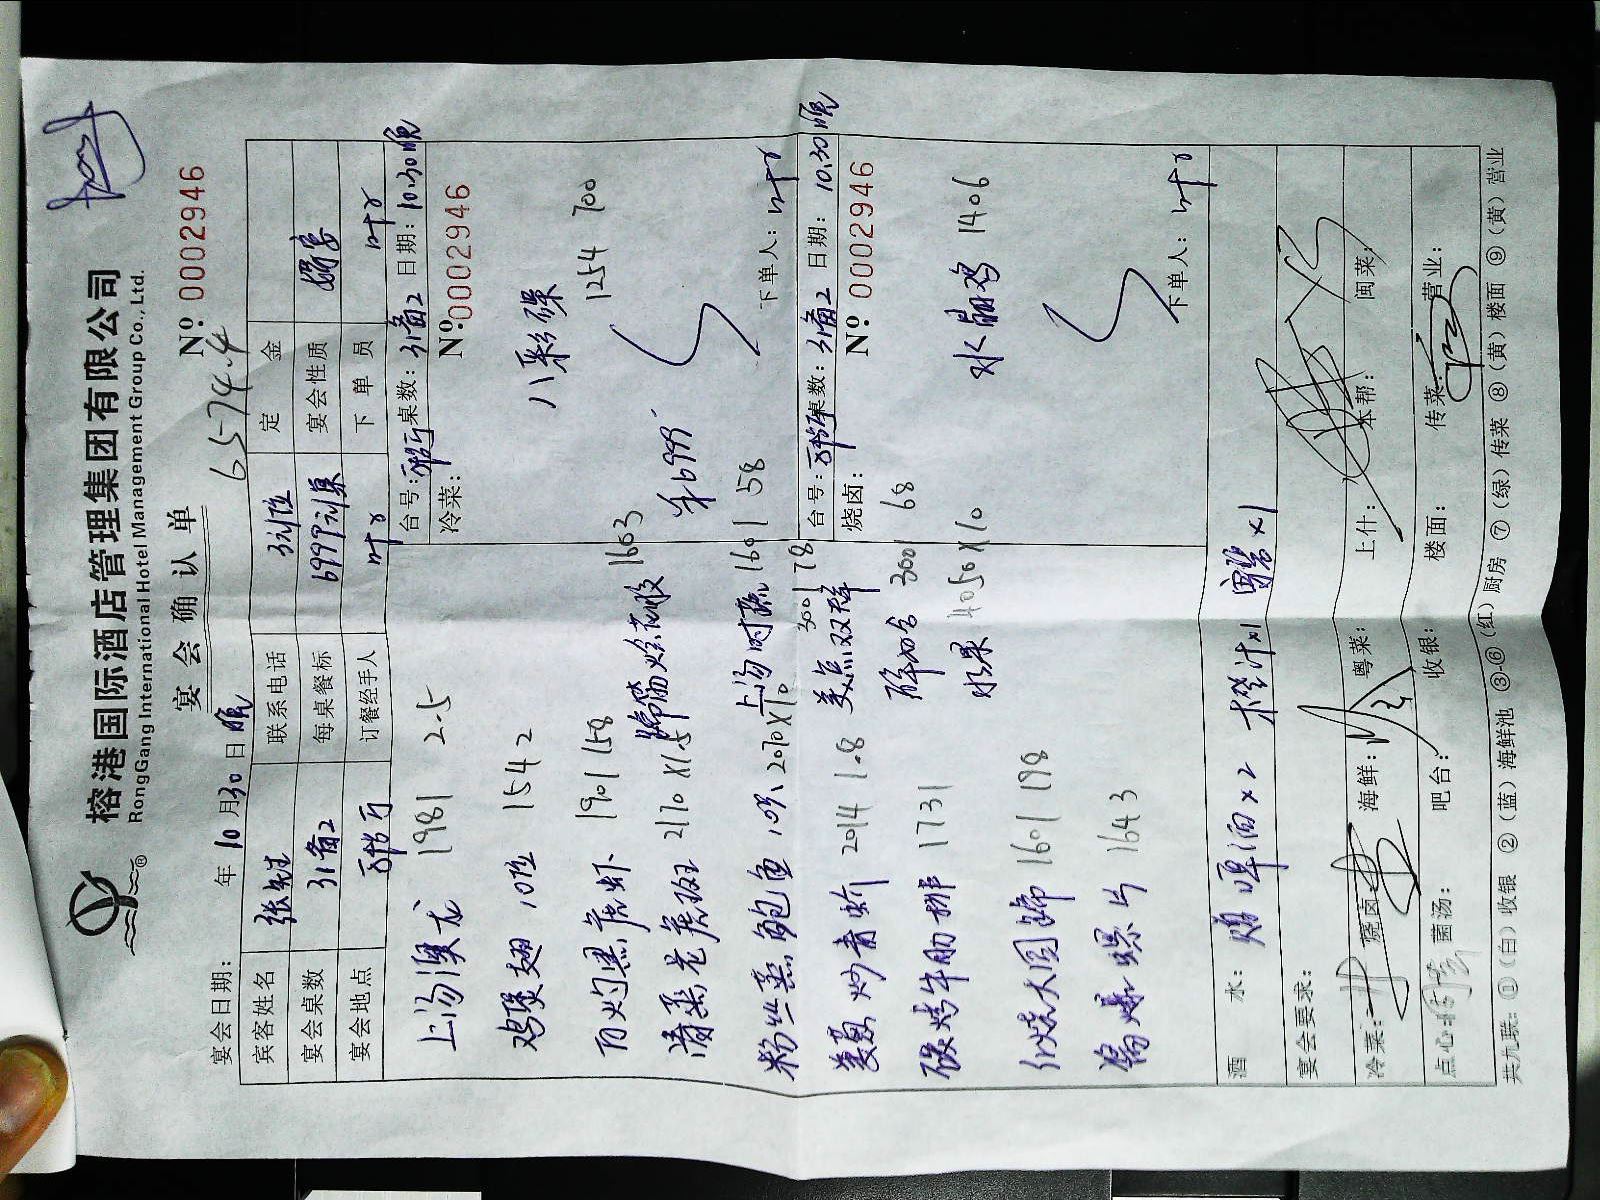 榕港国际酒店管理集团有限公司
RongGang International Hotel Management Group Co., Ltd.
宴会确认单
Nº 0002946
6574.4
宴会日期： 年 10 月 30 日 晚
宾客姓名 张先生 联系电话 定金
宴会桌数 31备2 每桌餐标 6999 婚宴 宴会性质
宴会地点 订餐经手人 叶 下单员 叶
台号： 桌数：31备2 日期：10.30晚
冷菜： Nº 0002946
八彩碟 1254 700
单6999
下单人：叶
台号： 桌数：31备2 日期：10.30晚
烧卤： Nº 0002946
水晶鸡 1406
下单人：叶
上汤澳龙 1981 2.5
鸡煲翅 10位 1542
白灼黑虎虾 1901 158
清蒸老虎斑 2110 X1.5
粉丝蒸鲍鱼 10只 2010X10
姜葱炒青蚧 2014 1.8
碳烤牛肋排 1731
红烧大圆蹄 1601 198
1643
1603
上汤时蔬 1601 58
美点双辉 3001 78
3001 68
水果 4050X10
酒水： 啤酒×2 橙汁×1 ×1
宴会要求：
冷菜： 烧卤： 海鲜： 粤菜： 上什： 本帮： 闽菜：
点心： 菌汤： 吧台： 收银： 楼面： 传菜： 营业：
共九联：①（白）收银 ②（蓝）海鲜池 ③-⑥（红）厨房 ⑦（绿）传菜 ⑧（黄）楼面 ⑨（黄）营业